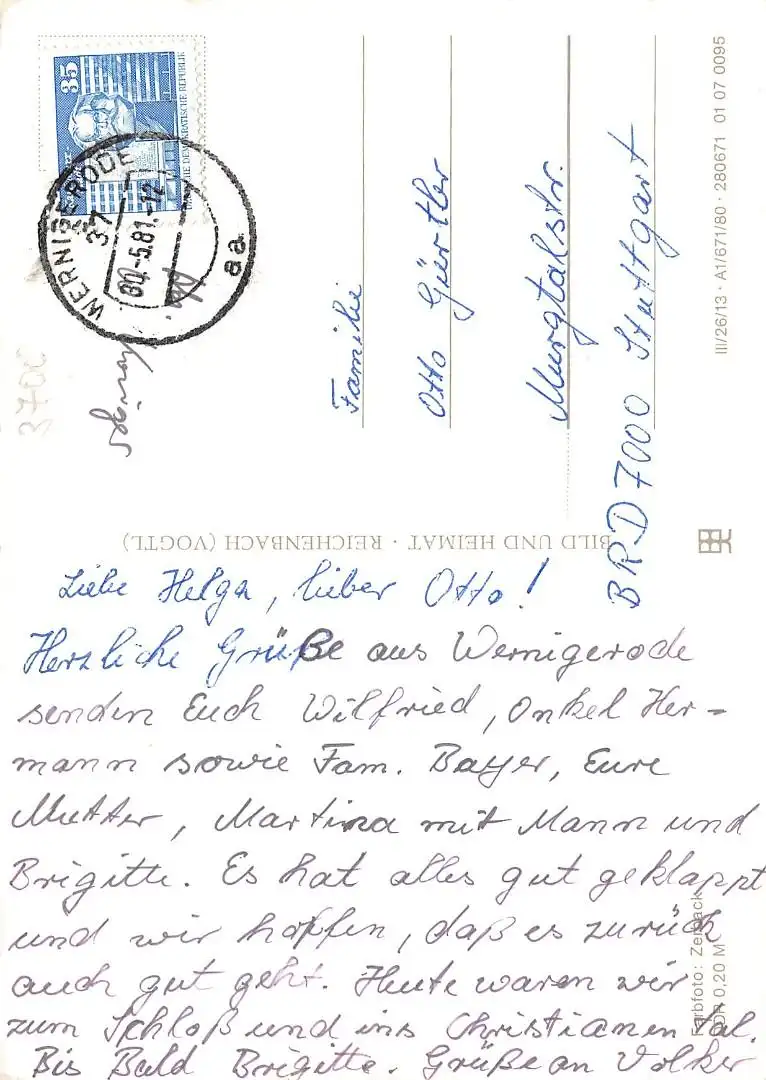 35
DEUTSCHE DEMOKRATISCHE REPUBLIK
WERNIGERODE
37
-5.81.-12
aa
3700
Familie
Otto Gürtler
Murgtalstr.
BRD 7000 Stuttgart
III/26/13 · A1/671/80 · 280671 01 07 0095
BILD UND HEIMAT · REICHENBACH (VOGTL)
Liebe Helga, lieber Otto!
Herzliche Grüße aus Wernigerode
senden Euch Wilfried, Onkel Her-
mann sowie Fam. Bayer, Eure
Mutter, Martina mit Mann und
Brigitte. Es hat alles gut geklappt
und wir hoffen, daß es zurück
auch gut geht. Heute waren wir
zum Schloß und ins Christianental.
Bis Bald Brigitte. Grüße an Volker
Farbfoto:
0,20 M